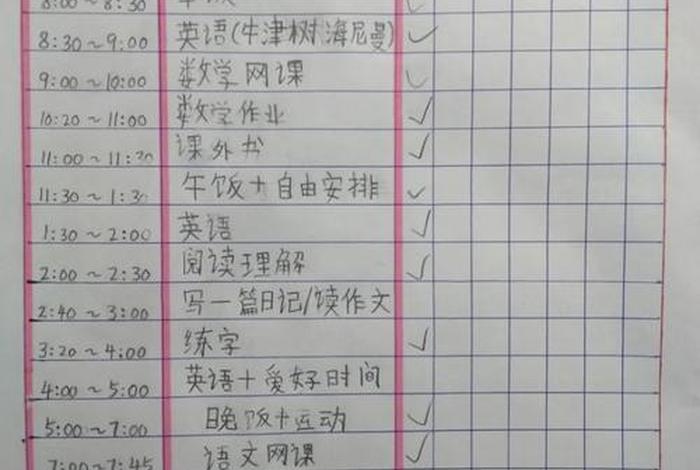 8:00~8:30
8:30~9:00 英语(牛津树,海尼曼)
9:00~10:00 数学网课
10:20~11:00 数学作业
11:00~11:30 课外书
11:30~1:30 午饭+自由安排
1:30~2:00 英语
2:00~2:30 阅读理解
2:40~3:00 写一篇日记/读作文
3:20~4:00 练字
4:00~5:00 英语+爱好时间
5:00~7:00 晚饭+运动
7:00~7:45 语文网课